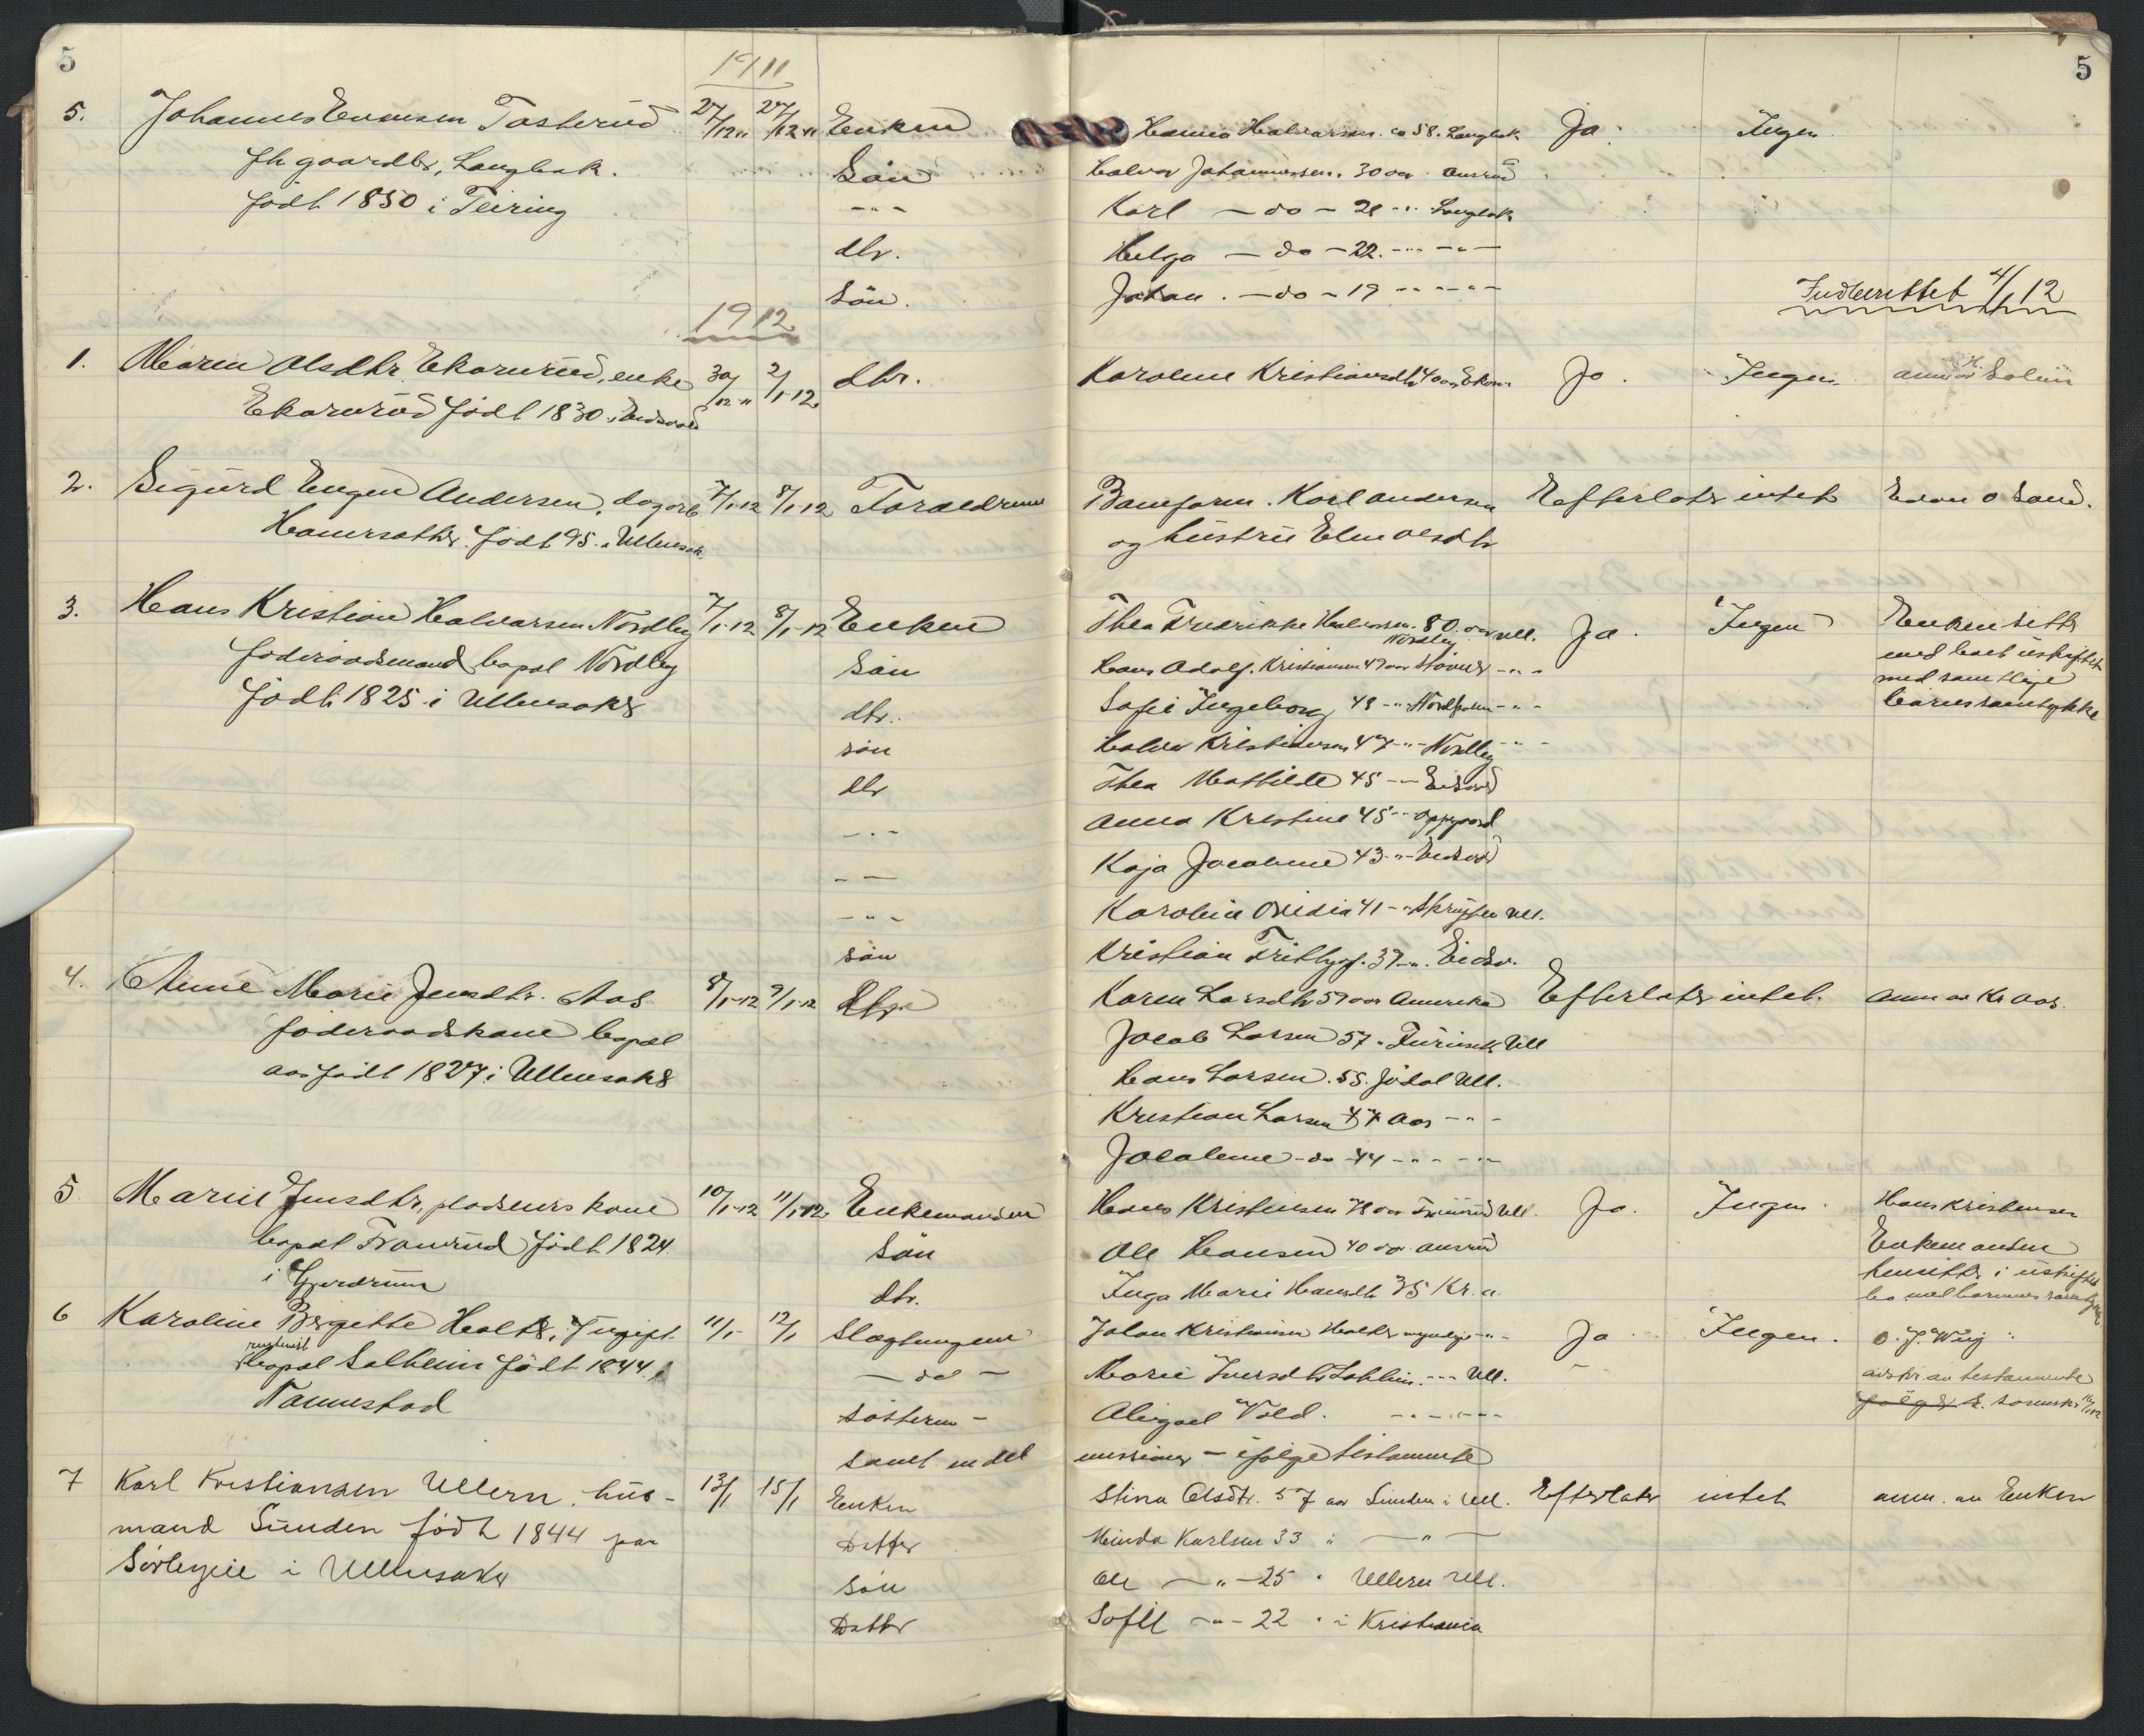 5
5
1911
5. Johannes Evensen Tosterud 27/12 11 27/12 11 Enken Hanna Halvorsen ca 58. Langbak Ja. Ingen
fh gaardbr, Langbak. Sön Halvor Johannessen. 30 aar. Ausrud
födt 1850 i Feiring — " — Karl — do — 28 — " — Langbak
dtr. Helga — do — 22. — " — " —
Sön. Johan. — do — 19 — " — " —
Indberettet 4/1 12
1912
1. Maren Olsdtr. Ekornrud, enke 30/12 11 2/1-12 dtr. Karoline Kristiansdtr 40 aar Ekorn. Ja. Ingen. anm. av H. Solum
Ekornrud födt 1830 i Eidsvold
2. Sigurd Eugen Andersen, dagarb. 7/1-12 8/1-12 Foraeldrene Baneform. Karl Andersen Efterlater intet
födt 95. i Ullensak. og hustru Olsdtr
3. Hans Kristian Halvorsen Nordby 7/1-12 8/1-12 Enken Thea Fredrikke Halvorsen. 80 aar Nordby Ull. Ja. Ingen Enken sitter
föderaadsmand bopæl Nordby Sön Hans Adolf Kristiansen 49 aar — " — med boet uskiftet
födt 1825 i Ullensaker dtr. Sofie Ingeborg 48 — " — — " — med samtlige
sön Halvor Kristiansen 47 — " — Nordby — " — börns samtykke
dtr Thea Mathilde 45 — " — Eidsvold
— " — Anna Kristine 45 — " — Oppegaard
— " — Kaja Jacobine 43 — " — Eidsvold
— " — Karoline Ovidia 41 — " — Ull.
sön Kristian Frithjof. 37 — " — Eidsv.
4. Anne Marie Jensdtr. Aas 8/1-12 9/1-12 Dtr. Karen Larsdtr 59 aar Amerika Efterlater intet. Anm. av Kr Aas.
föderaadskone bopæl Jacob Larsen 57 " Ull
Aas födt 1827 i Ullensaker Hans Larsen. 55. Jödal Ull.
Kristian Larsen 47 Aas — " —
Jacobine — do — 44 — " — " —
5. Marie Jensdtr, pladseiers kone 10/1-12 11/1-12 Enkemanden Hans Kristensen 78 aar Ull. Ja. Ingen. Hans Kristensen
bopæl födt 1824 Sön Ole Hansen 40 aar Ausrud Enkemanden
i Gjerdrum dtr. Inga Marie Hansdtr 35 Kr.a. hensitter i uskiftet
bo med barnenes samtykke
6 Karoline Birgitte Holter, Ingift. 11/1- 12/1 Slagtningene Johan Kristiansen Holter myndige — " — Ja Ingen. O. J. Wiig
bopæl Solheim födt 1844 i — do — Marie Iversdtr — " — Ull. avskr. av testamente
Nannestad Sösteren — Abigael Vold. — " — " —
samt en del missioner — ifölge testamente
7 Karl Kristiansen Ullern. hus- 13/1 15/1 Enken Stina Olsdtr. 57 aar Sunden i Ull. Efterlater intet anm. av Enken
mand Sunden födt 1844 paa Datter Minda Karlsen 33 " — " —
i Ullensaker Sön Ole — " — 25 " Ullern Ull.
Datter Sofie — " — 22 " i Kristiania